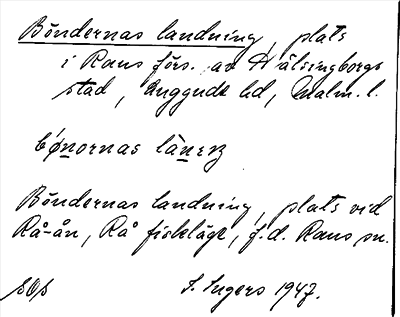 Böndernas landning, plats
i Raus förs. av Hälsingborgs
stad, Luggude hd, Malm. l.
bǿnornas
Böndernas landning, plats vid
Rå-ån, Rå fiskläge, f.d. Raus sn.
SOS I. Ingers 1947.